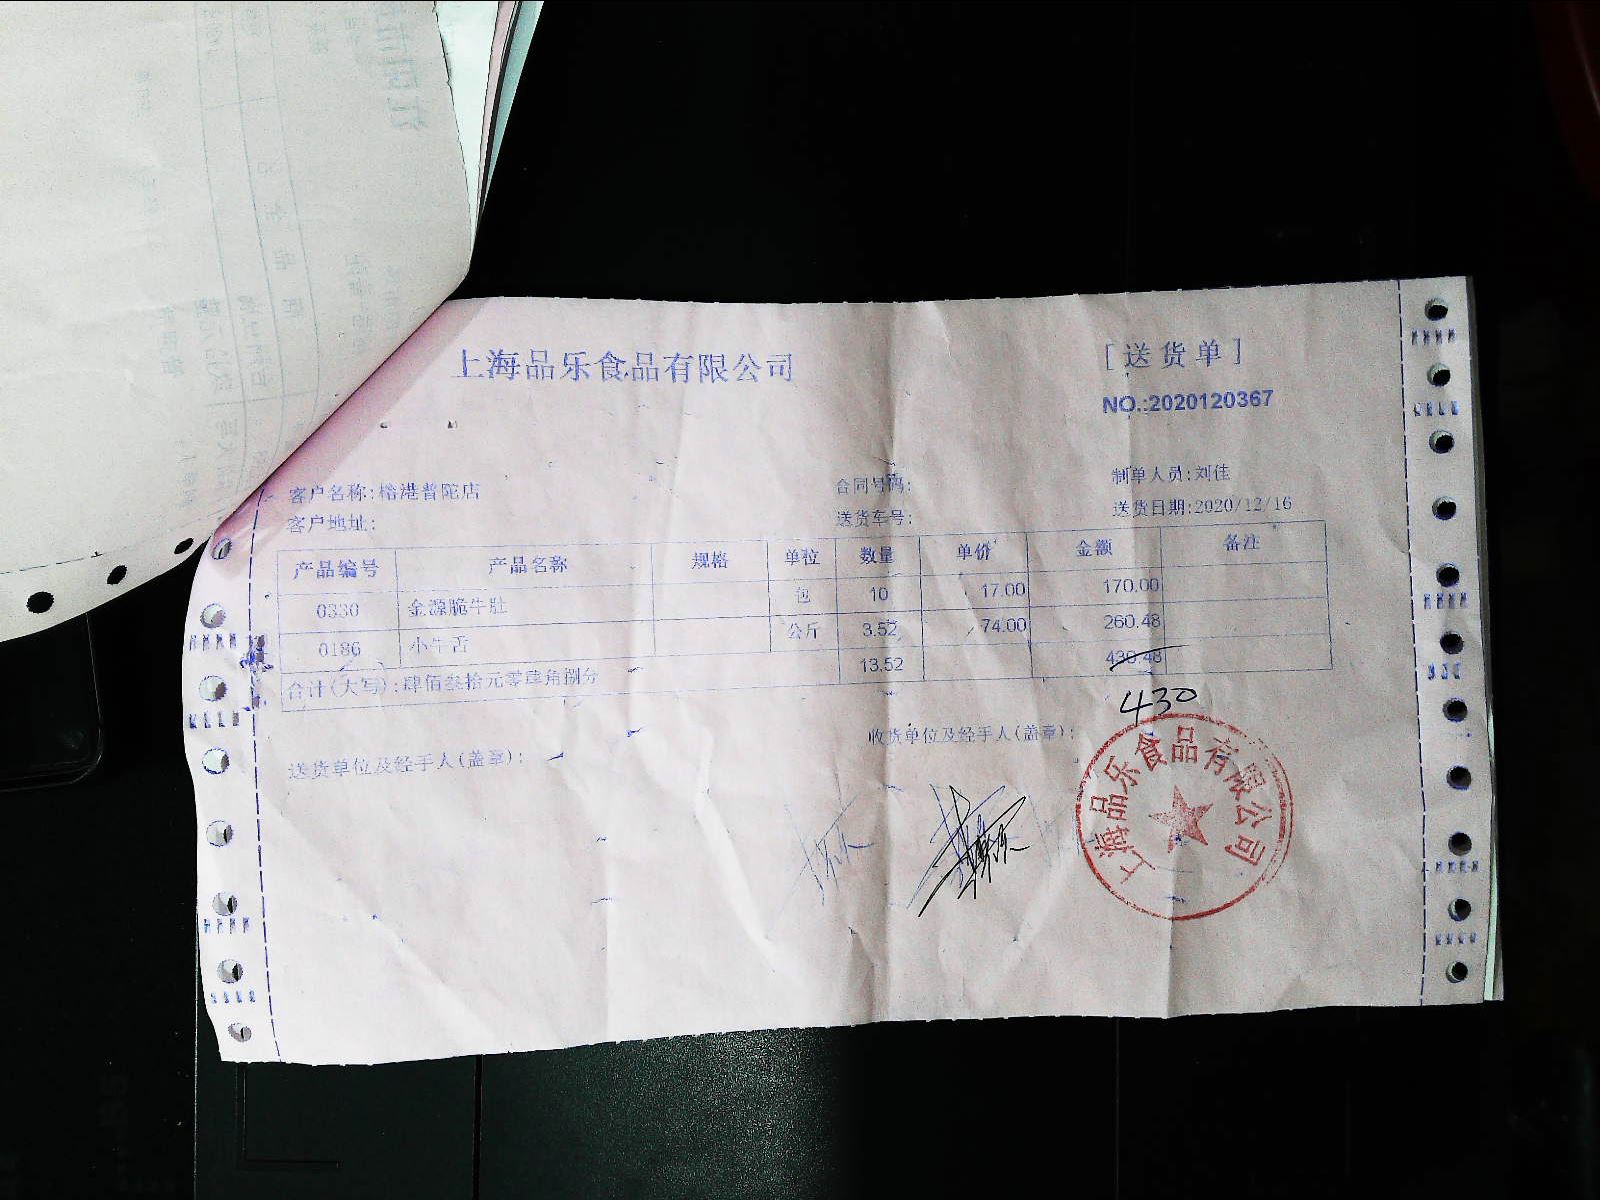 上海品乐食品有限公司
[送货单]
NO.:2020120367
客户名称:榕港普陀店
合同号码:
制单人员:刘佳
客户地址:
送货车号:
送货日期:2020/12/16
产品编号 产品名称 规格 单位 数量 单价 金额 备注
0330 金源脆牛肚 包 10 17.00 170.00
0186 小牛舌 公斤 3.52 74.00 260.48
合计(大写):肆佰叁拾元零肆角捌分 13.52 430.48
430
送货单位及经手人(盖章):
收货单位及经手人(盖章):
上海品乐食品有限公司